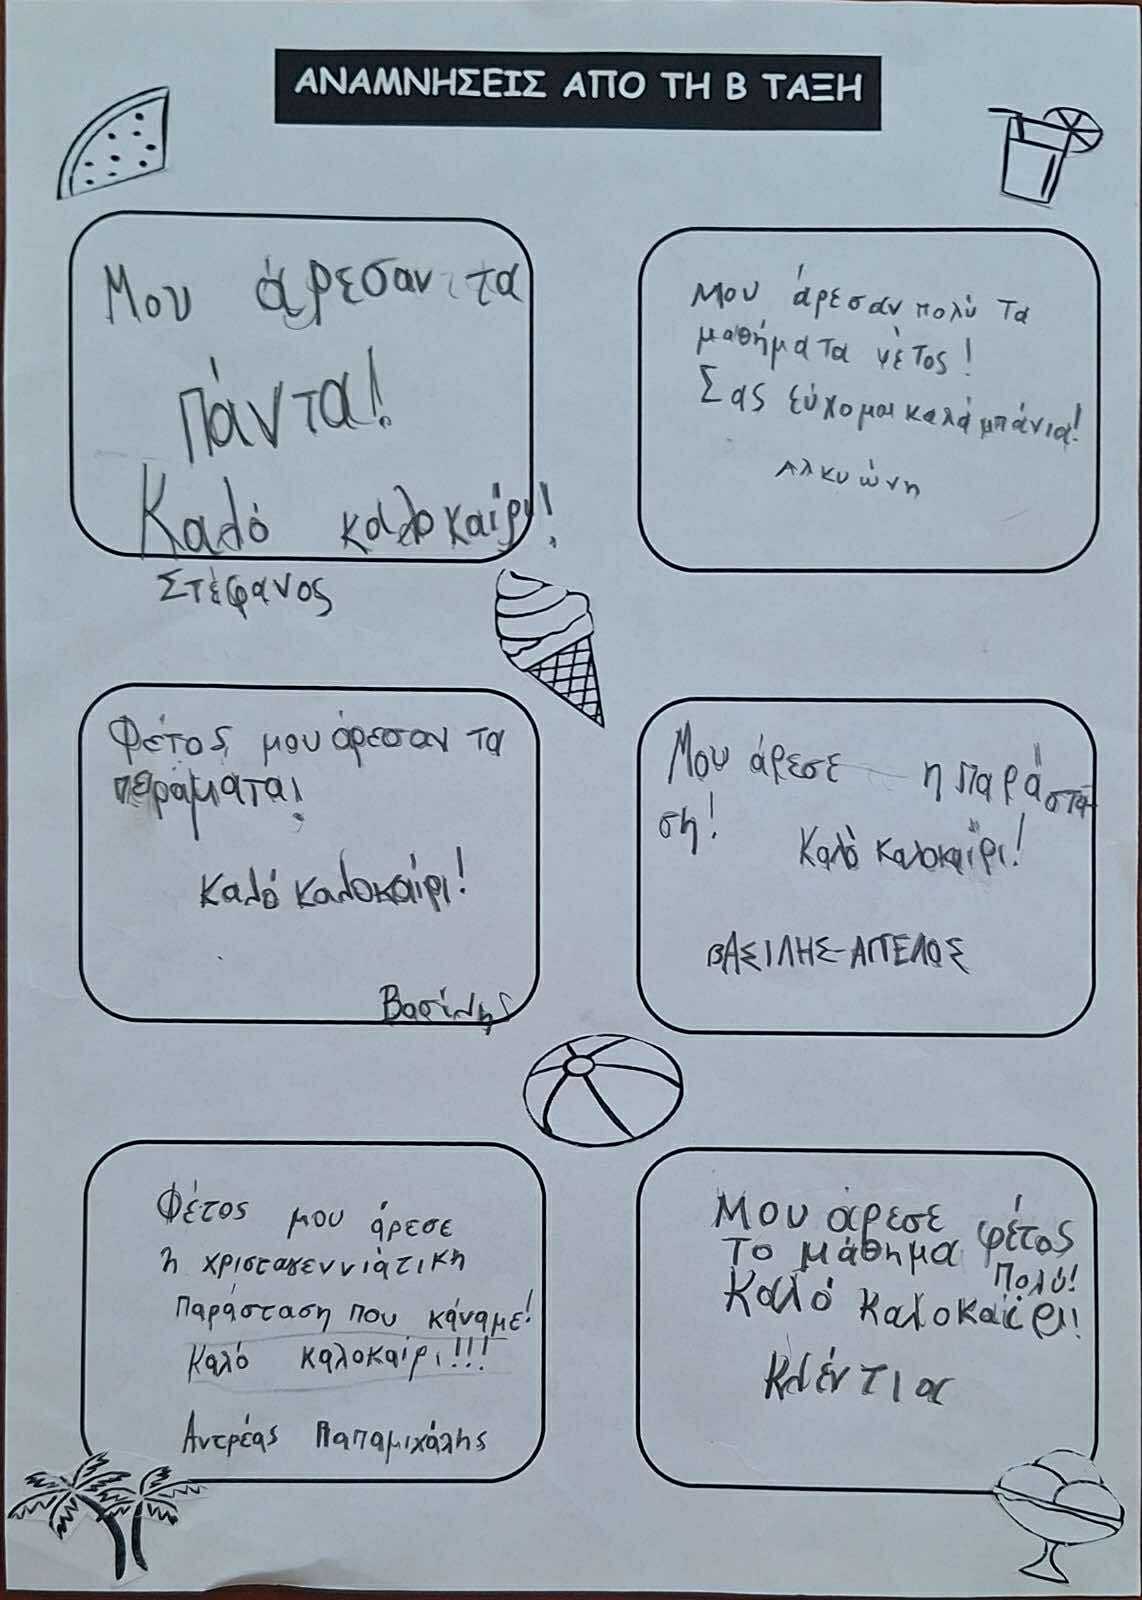 ΑΝΑΜΝΗΣΕΙΣ ΑΠΟ ΤΗ Β ΤΑΞΗ
Μου άρεσαν τα
πάντα!
Καλό καλοκαίρι!
Στέφανος
Μου άρεσαν πολύ τα
μαθήματα φέτος!
Σας εύχομαι καλά μπάνια!
Αλκυώνη
Φέτος μου άρεσαν τα
πειράματα!
Καλό καλοκαίρι!
Βασίλης
Μου άρεσε η παράστα-
ση!
Καλό καλοκαίρι!
ΒΑΣΙΛΗΣ-ΑΓΓΕΛΟΣ
Φέτος μου άρεσε
η χριστουγεννιάτικη
παράσταση που κάναμε!
Καλό καλοκαίρι!!!
Αντρέας Παπαμιχάλης
Μου άρεσε φέτος
το μάθημα πολύ!
Καλό καλοκαίρι!!
Κλέντια